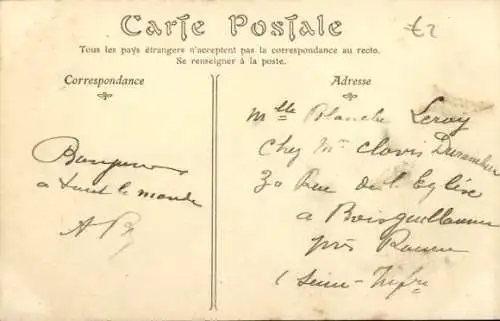 Carte Postale
£2
Tous les pays étrangers n'acceptent pas la correspondance au recto.
Se renseigner à la poste.
Correspondance
Bonjour
a tout le monde
A B
Adresse
Mlle Blanche Leroy
Chez Mr Clovis
30 Rue de l'Eglise
a Boisguillaume
près Rouen
(Seine-Infre